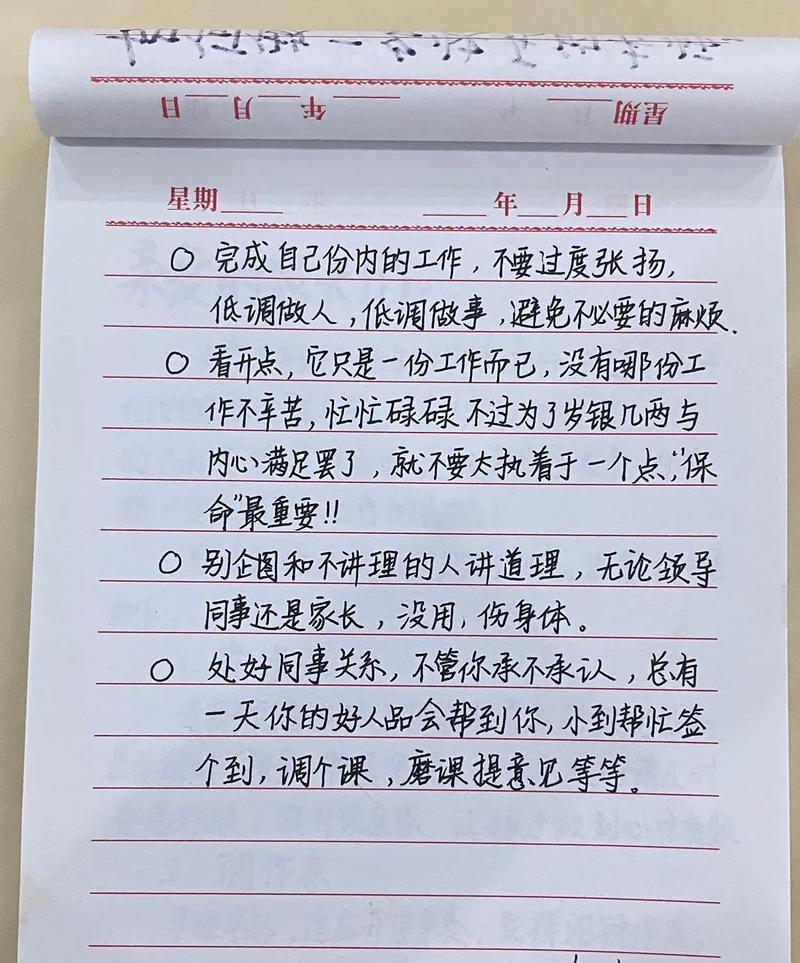 星期 年 月 日
星期 年 月 日
○ 完成自己份内的工作，不要过度张扬，
低调做人，低调做事，避免不必要的麻烦.
○ 看开点，它只是一份工作而已，没有哪份工
作不辛苦，忙忙碌碌不过为了岁银几两与
内心满足罢了，就不要太执着于一个点，“保
命”最重要!!
○ 别企图和不讲理的人讲道理，无论领导
同事还是家长，没用，伤身体。
○ 处好同事关系，不管你承不承认，总有
一天你的好人品会帮到你，小到帮忙签
个到，调个课，磨课提意见等等。